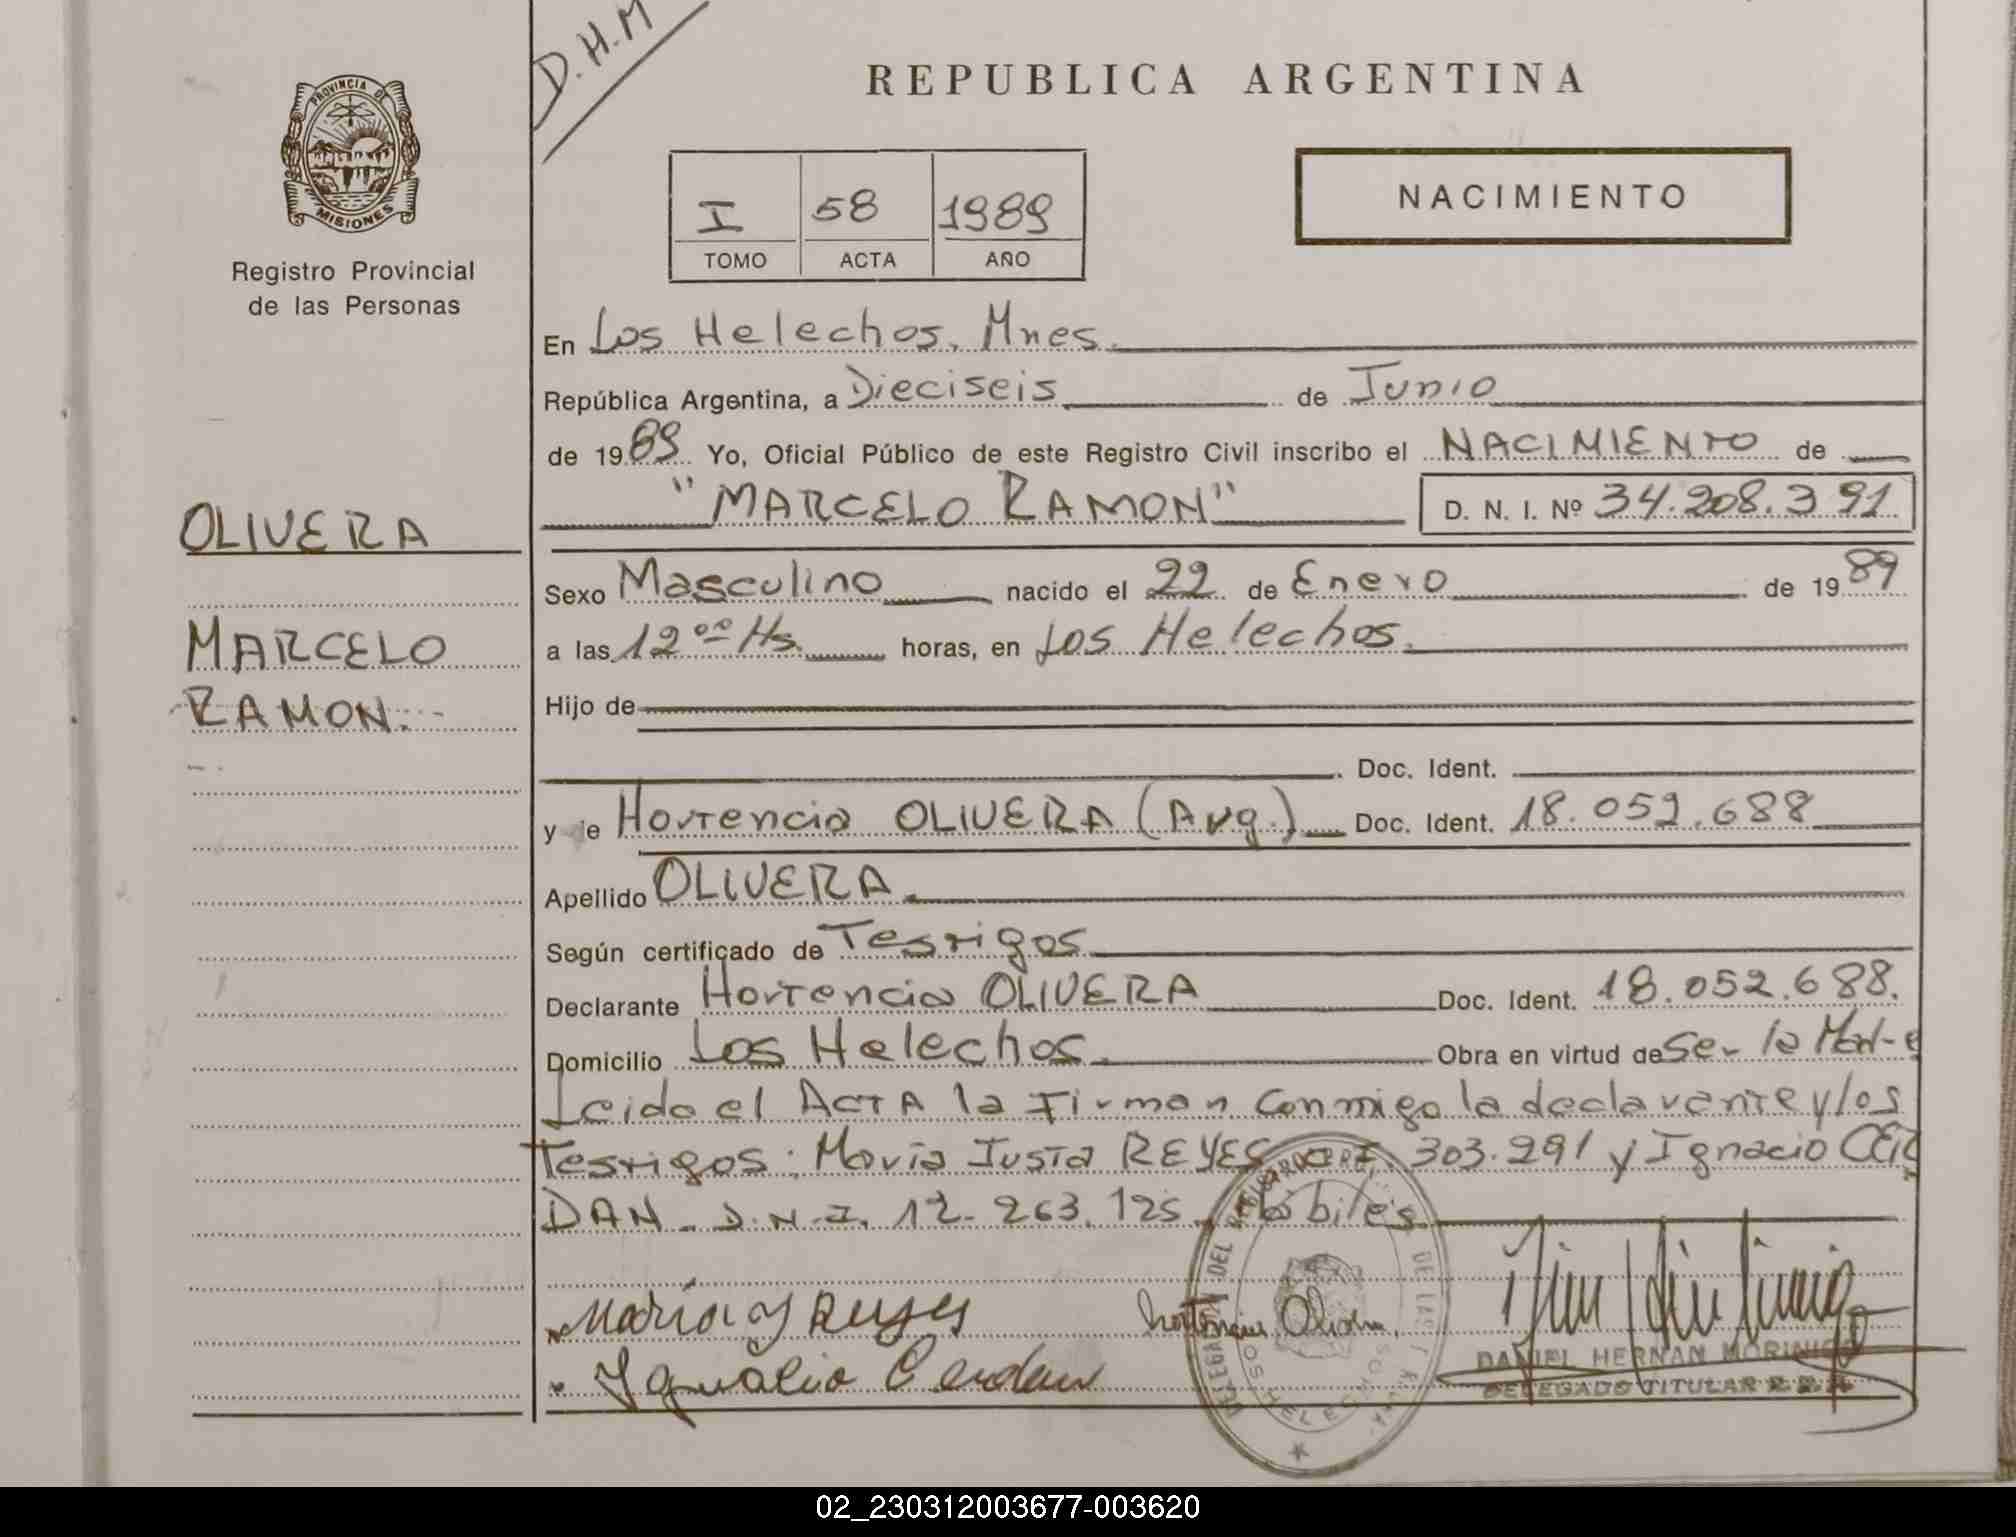 D.H.M
REPUBLICA ARGENTINA
PROVINCIA DE
MISIONES
Registro Provincial
de las Personas
I 58 1989
TOMO ACTA AÑO
NACIMIENTO
En Los Helechos, Mnes.
República Argentina, a Dieciseis de Junio
de 1989 Yo, Oficial Público de este Registro Civil inscribo el NACIMIENTO de
"MARCELO RAMON" D. N. I. Nº 34.208.391
OLIVERA
MARCELO
RAMON.
Sexo Masculino nacido el 22 de Enero de 1989
a las 12 00 Hs. horas, en Los Helechos.
Hijo de
Doc. Ident.
y de Hortencia OLIVERA (Arg.) Doc. Ident. 18.052.688
Apellido OLIVERA
Según certificado de Testigos
Declarante Hortencia OLIVERA Doc. Ident. 18.052.688.
Domicilio Los Helechos. Obra en virtud de Ser la Madre
Leida el ACTA la Firman conmigo la declarante y los
Testigos: Maria Justa REYES 303.291 y Ignacio CER
DAN. D.N.I. 12.263.125. Habiles
Maria J Reyes Hortencia Olivera
Ygnacio Cerdan
DANIEL HERNAN MORINIGO
DELEGADO TITULAR R. P. P.
02_230312003677-003620